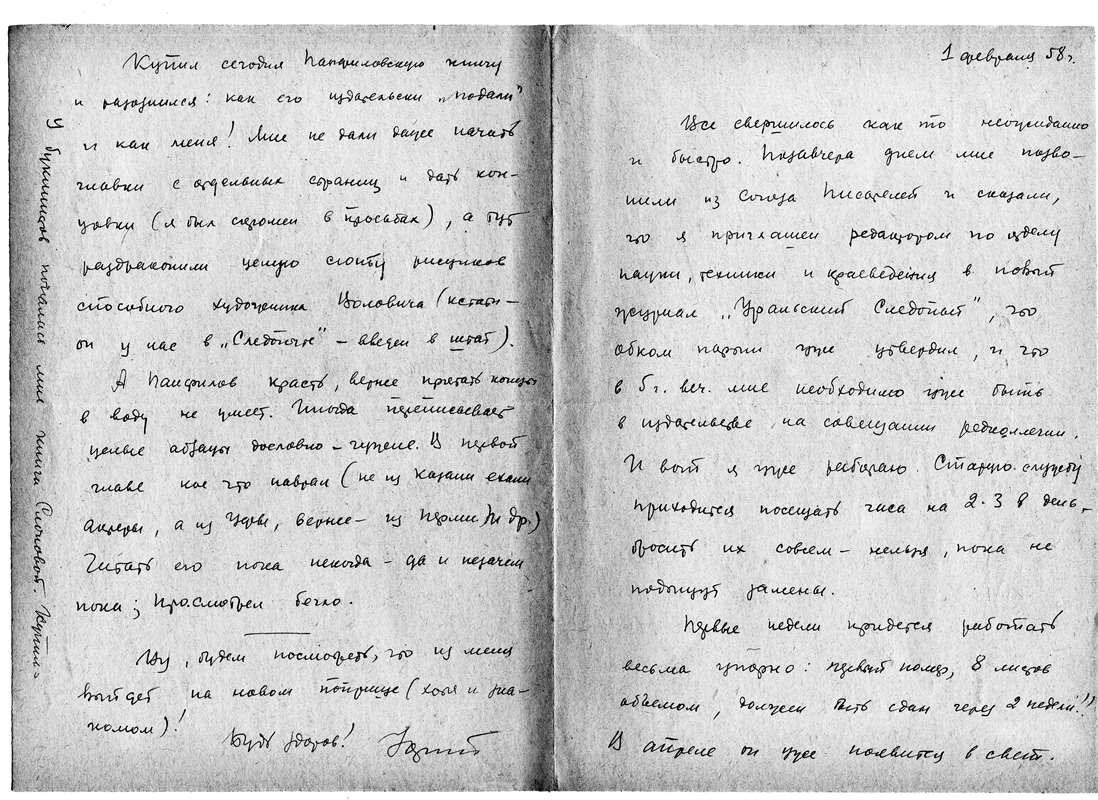 1 февраля 58 г.
Все свершилось как то неожиданно
и быстро. Позавчера днем мне позво-
нили из Союза Писателей и сказали,
что я приглашен редактором по отделу
науки, техники и краеведения в новый
журнал „Уральский Следопыт", что
обком партии уже утвердил, и что
в 5 г. веч. мне необходимо уже быть
в издательстве на совещании редколлегии.
И вот я уже работаю. Старую службу
приходится посещать часа на 2-3 в день,-
бросить их совсем - нельзя, пока не
подыщут замены.
Первые недели придется работать
весьма упорно: первый номер, 8 листов
объемом, должен быть сдан через 2 недели!!
В апреле он уже появится в свет.
Купил сегодня Панфиловскую книгу
и разозлился: как его издательски „подали"
и как меня! Мне не дали даже начать
главки с отдельных страниц и дать кон-
цовки (я был скромен в просьбах), а тут
раздраконили целую сюиту рисунков
способного художника Воловича (кстати-
он у нас в „Следопыте" - введен в штат).
А Панфилов красть, вернее прятать концы
в воду не умеет. Иногда переписывает
целые абзацы дословно - чужие. В первой
главе кое что наврал (не из Казани ехали
актеры, а из Уфы, вернее - из Перми. И др.)
Читать его пока некогда - да и незачем
пока; просмотрел бегло.
Ну, будем посмотреть, что из меня
выйдет на новом поприще (хотя и зна-
комом)!
Будь здоров!
У букинистов попалась мне книга Слоновой. Купил.